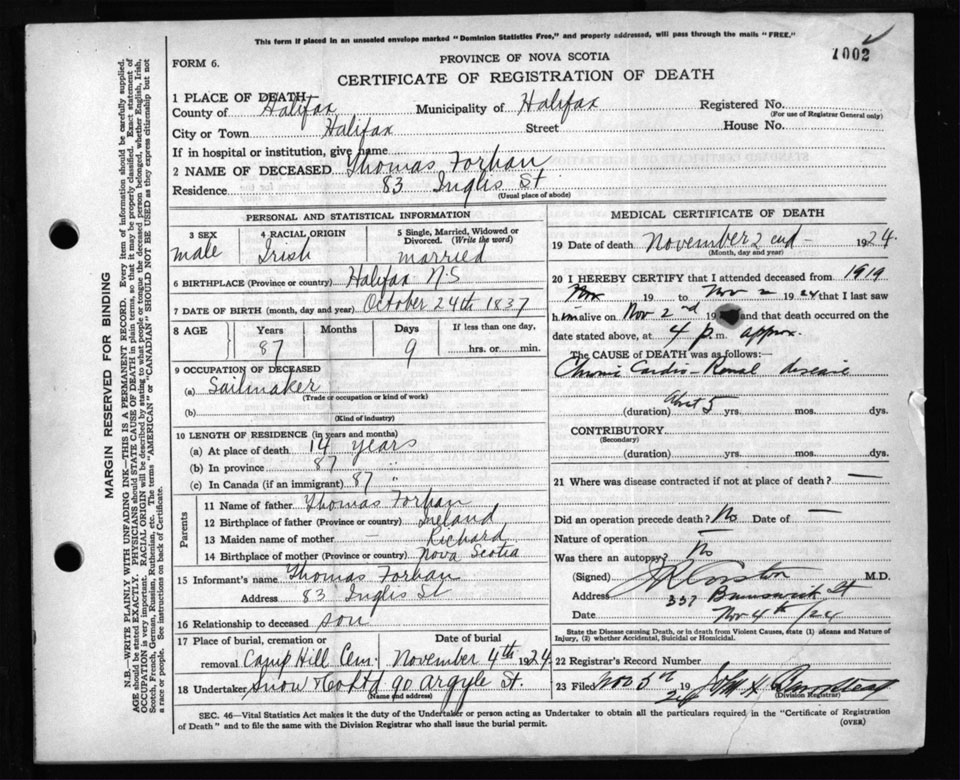 This form if placed in an unsealed envelope marked "Dominion Statistics Free," and properly addressed, will pass through the mails "FREE."
1002
FORM 6.
PROVINCE OF NOVA SCOTIA
CERTIFICATE OF REGISTRATION OF DEATH
1 PLACE OF DEATH
County of Halifax Municipality of Halifax Registered No.
(For use of Registrar General only)
City or Town Halifax Street House No.
If in hospital or institution, give name
2 NAME OF DECEASED Thomas Forhan
Residence 83 Inglis St
(Usual place of abode)
PERSONAL AND STATISTICAL INFORMATION
3 SEX 4 RACIAL ORIGIN 5 Single, Married, Widowed or Divorced. (Write the word)
male Irish married
6 BIRTHPLACE (Province or country) Halifax N.S
7 DATE OF BIRTH (month, day and year) October 24th 1837
8 AGE Years Months Days If less than one day,
87 9 hrs. or min.
9 OCCUPATION OF DECEASED
(a) Sailmaker
(Trade or occupation or kind of work)
(b)
(Kind of industry)
10 LENGTH OF RESIDENCE (in years and months)
(a) At place of death 14 years
(b) In province 87 "
(c) In Canada (if an immigrant) 87 "
Parents
11 Name of father Thomas Forhan
12 Birthplace of father (Province or country) Ireland
13 Maiden name of mother — Richard
14 Birthplace of mother (Province or country) Nova Scotia
15 Informant's name Thomas Forhan
Address 83 Inglis St
16 Relationship to deceased son
17 Place of burial, cremation or removal Date of burial
Camp Hill Cem. November 4th 1924
18 Undertaker Snow & Co Ltd 90 Argyle St.
(Name and address)
MEDICAL CERTIFICATE OF DEATH
19 Date of death November 2end 1924.
(Month, day and year)
20 I HEREBY CERTIFY that I attended deceased from 1919
Nov 19 to Nov 2 1924 that I last saw
h im alive on Nov 2nd 19 and that death occurred on the
date stated above, at 4 p.m. approx.
The CAUSE of DEATH was as follows:—
Chronic Cardio-Renal disease
(duration) Abot 5 yrs. mos. dys.
CONTRIBUTORY
(Secondary)
(duration) yrs. mos. dys.
21 Where was disease contracted if not at place of death? —
Did an operation precede death? No Date of —
Nature of operation —
Was there an autopsy? No
(Signed) M.D.
Address 357 Brunswick St
Date Nov 4th/24
State the Disease causing Death, or in death from Violent Causes, state (1) Means and Nature of Injury, (2) whether Accidental, Suicidal or Homicidal.
22 Registrar's Record Number
23 Filed Nov 5th 1924 John H.
(Division Registrar)
SEC. 46—Vital Statistics Act makes it the duty of the Undertaker or person acting as Undertaker to obtain all the particulars required in the "Certificate of Registration
of Death" and to file the same with the Division Registrar who shall issue the burial permit.
(OVER)
MARGIN RESERVED FOR BINDING
N.B.—WRITE PLAINLY WITH UNFADING INK—THIS IS A PERMANENT RECORD. Every item of information should be carefully supplied.
AGE should be stated EXACTLY. PHYSICIANS should STATE CAUSE OF DEATH in plain terms, so that it may be properly classified. Exact statement of
OCCUPATION is very important. RACIAL ORIGIN will be described by stating to what people or tongue the deceased person belonged, whether English, Irish,
Scotch, French, German, Russian, Ruthenian, etc. The terms "AMERICAN" or "CANADIAN" SHOULD NOT BE USED as they express citizenship but not
a race or people. See instructions on back of Certificate.